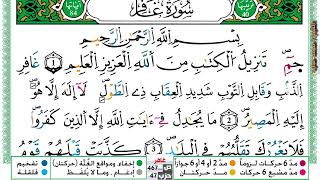 سُورَةُ غَافِرٍ
بِسْمِ ٱللَّهِ ٱلرَّحْمَٰنِ ٱلرَّحِيمِ
حمٓ ١ تَنزِيلُ ٱلْكِتَٰبِ مِنَ ٱللَّهِ ٱلْعَزِيزِ ٱلْعَلِيمِ ٢ غَافِرِ
ٱلذَّنۢبِ وَقَابِلِ ٱلتَّوْبِ شَدِيدِ ٱلْعِقَابِ ذِى ٱلطَّوْلِ لَآ إِلَٰهَ إِلَّا هُوَ
إِلَيْهِ ٱلْمَصِيرُ ٣ مَا يُجَٰدِلُ فِىٓ ءَايَٰتِ ٱللَّهِ إِلَّا ٱلَّذِينَ كَفَرُوا۟
فَلَا يَغْرُرْكَ تَقَلُّبُهُمْ فِى ٱلْبِلَٰدِ ٤ كَذَّبَتْ قَبْلَهُمْ قَوْمُ
مدّ 6 حركات لزوماً مدّ 2 أو 4 أو 6 جوازاً غافر 467 إخفاء، ومواقع الغُنَّة (حركتان) تفخيم
مدّ حركتان 47 إدغام، وما لا يُلفَظ قلقلة